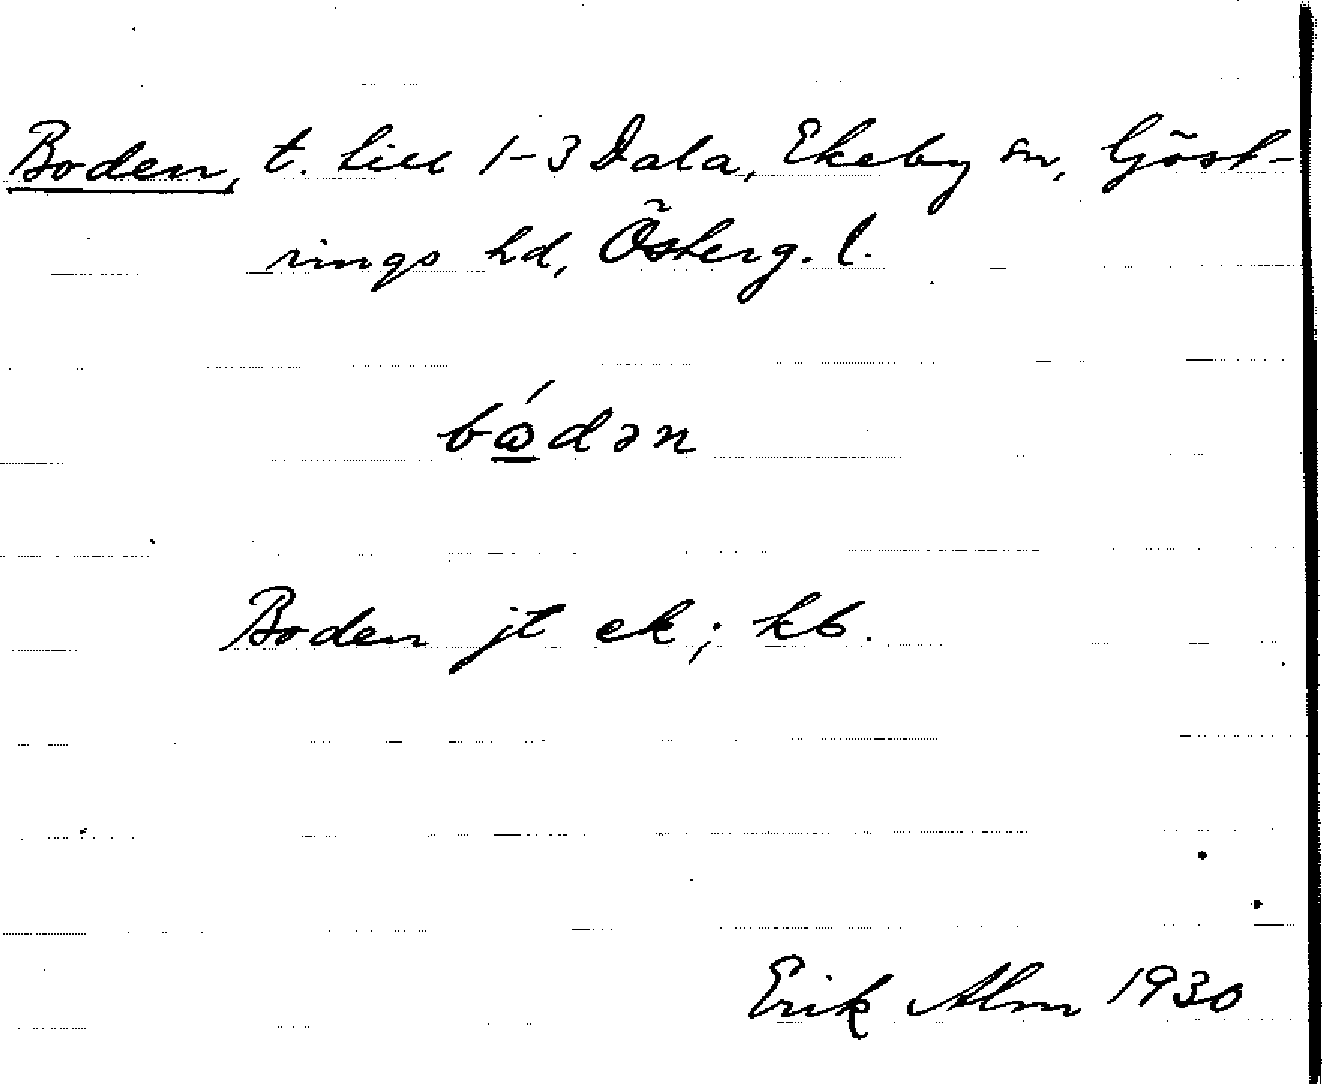 Boden, t. till 1-3 Dala, Ekeby sn, Göst-
rings hd, Österg. l.
bǿdən
Boden jt ek; kb.
Erik Alm 1930